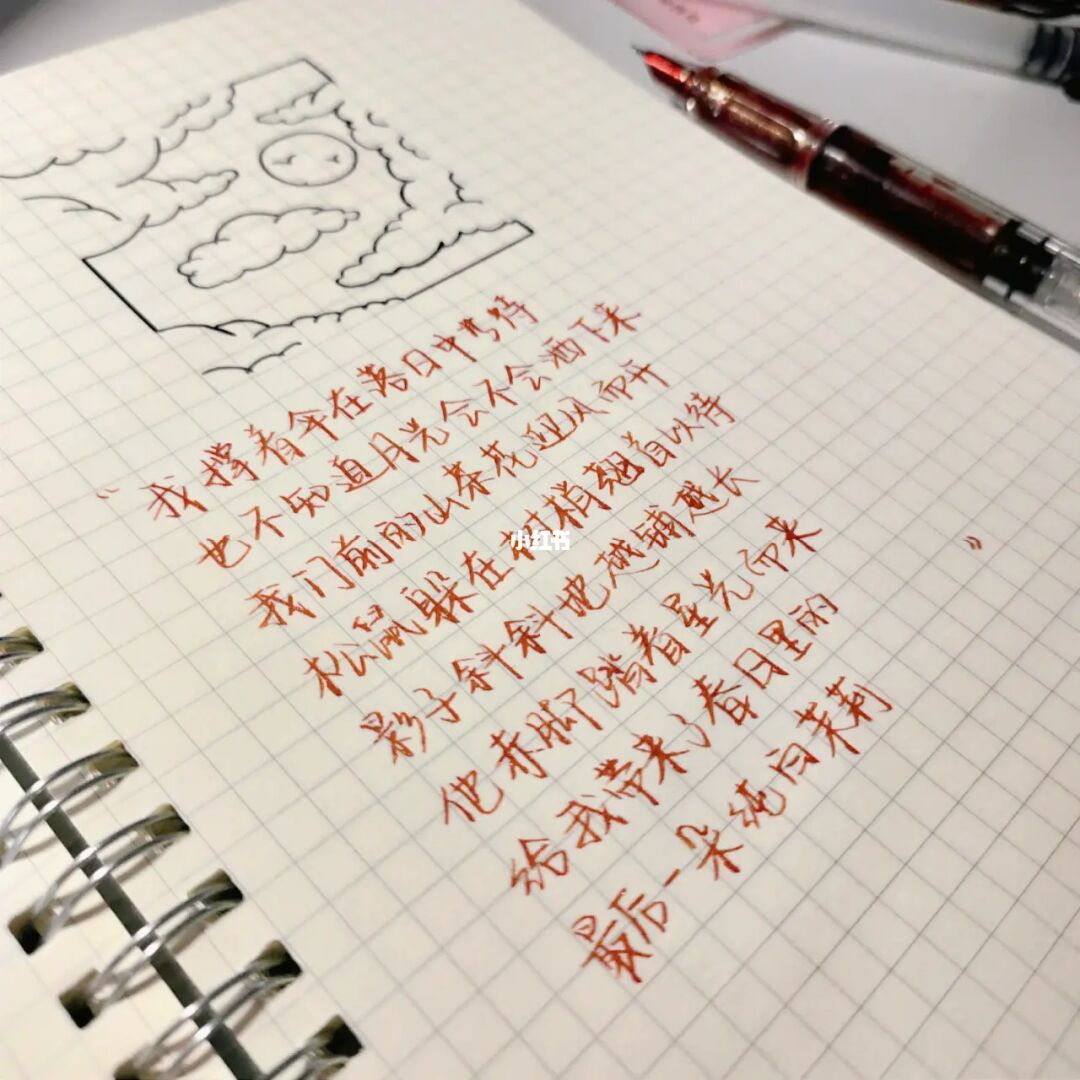 “我撑着伞在落日中等待
也不知道月光会不会洒下来
我门前的山茶花迎风而开
松鼠躲在树梢翘首以待
影子斜斜地越铺越长
他赤脚踏着星光而来
给我带来了春日里的
最后一朵纯白茉莉”
小红书